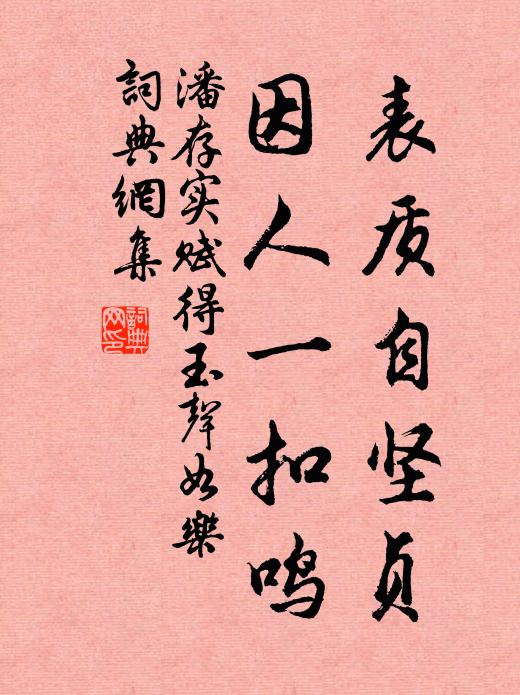 表质自坚贞
因人一扣鸣
潘存实赋得玉声如乐
詞典網集
詞典
网印